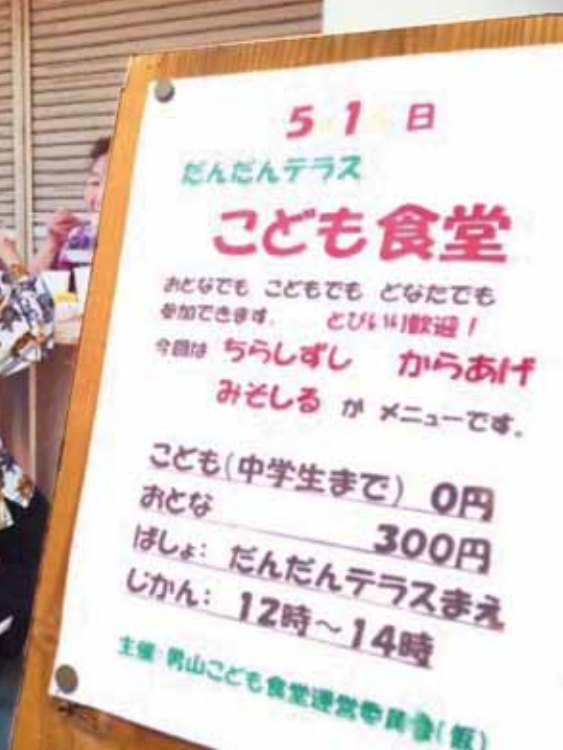 5月1日
だんだんテラス
こども食堂
おとなでも こどもでも どなたでも
参加できます。 とびいり歓迎！
今回は ちらしずし からあげ
みそしる が メニューです。
こども(中学生まで) 0円
おとな 300円
ばしょ： だんだんテラスまえ
じかん： 12時～14時
主催：男山こども食堂運営委員会(仮)